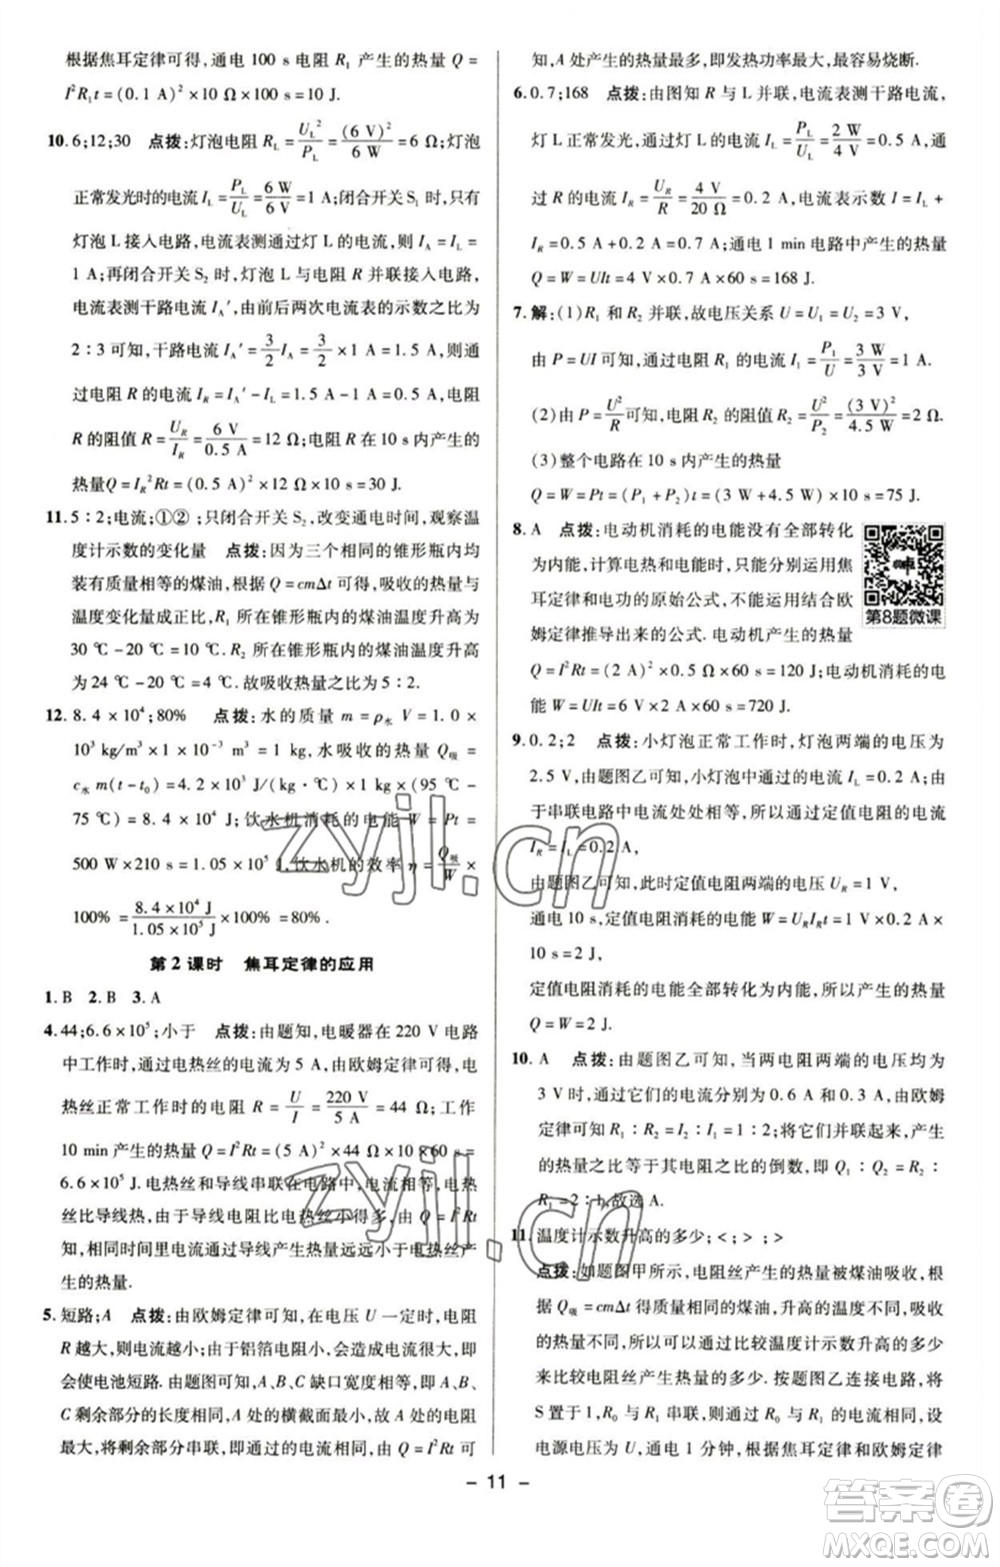 根据焦耳定律可得,通电 100 s 电阻 R₁ 产生的热量 Q =
I²R₁t=(0.1 A)²×10 Ω×100 s=10 J.
10.6;12;30 点拨:灯泡电阻 R_L=U_L²/P_L=(6 V)²/6 W=6 Ω;灯泡
正常发光时的电流 I_L=P_L/U_L=6 W/6 V=1 A;闭合开关 S₁ 时,
灯泡 L 接入电路,电流表测通过灯 L 的电流,则 I_A=I_L=
1 A;再闭合开关 S₂ 时,灯泡 L 与电阻 R 并联接入电路,
电流表测干路电流 I_A′,由前后两次电流表的示数之比为
2∶3 可知,干路电流 I_A′=3/2 I_A=3/2×1 A=1.5 A,则通
过电阻 R 的电流 I_R=I_A′-I_L=1.5 A-1 A=0.5 A,电阻
R 的阻值 R=U_R/I_R=6 V/0.5 A=12 Ω;电阻 R 在 10 s 内产生的
热量Q=I_R²Rt=(0.5 A)²×12 Ω×10 s=30 J.
11.5∶2;电流;①②;只闭合开关 S₂,改变通电时间,观察温
度计示数的变化量 点拨:因为三个相同的锥形瓶内均
装有质量相等的煤油,根据 Q=cmΔt 可得,吸收的热量与
温度变化量成正比,R₁ 所在锥形瓶内的煤油温度升高为
30 ℃-20 ℃=10 ℃.R₂ 所在锥形瓶内的煤油温度升高
为 24 ℃-20 ℃=4 ℃.故吸收热量之比为 5∶2.
12.8.4×10⁴;80% 点拨:水的质量 m=ρ水 V=1.0×
10³ kg/m³×1×10⁻³ m³=1 kg,水吸收的热量 Q吸=
c水 m(t-t₀)=4.2×10³ J/(kg·℃)×1 kg×(95 ℃-
75 ℃)=8.4×10⁴ J;饮水机消耗的电能 W=Pt=
500 W×210 s=1.05×10⁵ J,饮水机的效率 η=Q吸/W×
100%=8.4×10⁴ J/1.05×10⁵ J×100%=80%.
第 2 课时 焦耳定律的应用
1.B 2.B 3.A
4.44;6.6×10⁵;小于 点拨:由题知,电暖器在 220 V 电路
中工作时,通过电热丝的电流为 5 A,由欧姆定律可得,电
热丝正常工作时的电阻 R=U/I=220 V/5 A=44 Ω;工作
10 min 产生的热量 Q=I²Rt=(5 A)²×44 Ω×10×60 s=
6.6×10⁵ J.电热丝和导线串联在电路中,电流相同,电热
丝比导线热,由于导线电阻比电热丝小得多,由 Q=I²Rt
知,相同时间里电流通过导线产生热量远远小于电热丝产
生的热量.
5.短路;A 点拨:由欧姆定律可知,在电压 U 一定时,电阻
R 越大,则电流越小;由于铝箔电阻小,会造成电流过大,
会使电池短路.由题图可知,A、B、C 缺口宽度相同,A、B、
C 剩余部分的长度相同,A 处的横截面积最小,则电阻最
大,将剩余部分串联,则通过的电流相同,由 Q=I²Rt 可
知,A 处产生的热量最多,即发热功率最大,最容易烧断.
6.0.7;168 点拨:由图知 R 与 L 并联,电流表测干路电流,
灯 L 正常发光,则通过灯的电流 I_L=P_L/U_L=2 W/4 V=0.5 A,通
过 R 的电流 I_R=U_R/R=4 V/20 Ω=0.2 A,电流表示数 I=I_L+
I_R=0.5 A+0.2 A=0.7 A;通电 1 min 电路中产生的热量
Q=W=UIt=4 V×0.7 A×60 s=168 J.
7.解:(1)R₁ 和 R₂ 并联,故电压关系 U=U₁=U₂=3 V,
由 P=UI 可知,通过电阻 R₁ 的电流 I₁=P₁/U=3 W/3 V=1 A.
(2)由 P=U²/R可知,电阻 R₂ 的阻值 R₂=U²/P₂=(3 V)²/4.5 W=2 Ω.
(3)整个电路在 10 s 内产生的热量
Q=W=Pt=(P₁+P₂)t=(3 W+4.5 W)×10 s=75 J.
8.A 点拨:电动机消耗的电能没有全部转化
为内能,计算电热和电能时,只能分别运用焦
耳定律和电功的原始公式,不能运用结合欧
姆定律推导出来的公式.电动机产生的热量
第8题微课
Q=I²Rt=(2 A)²×0.5 Ω×60 s=120 J;电动机消耗的电
能 W=UIt=6 V×2 A×60 s=720 J.
9.0.2;2 点拨:小灯泡正常工作时,灯泡两端的电压为
2.5 V,由题图乙可知,小灯泡中通过的电流 I_L=0.2 A;由
于串联电路中电流处处相等,所以通过定值电阻的电流
I_R=I_L=0.2 A,
由题图乙可知,此时定值电阻两端的电压 U_R=1 V,
通电 10 s,定值电阻消耗的电能 W=U_R I_R t=1 V×0.2 A×
10 s=2 J,
定值电阻消耗的电能全部转化为内能,所以产生的热量
Q=W=2 J.
10.A 点拨:由题图乙可知,当两电阻两端的电压均为
3 V 时,通过它们的电流分别为 0.6 A 和 0.3 A,由欧姆
定律可知 R₁∶R₂=I₂∶I₁=1∶2;将它们并联起来,产生
的热量之比等于其电阻之比的倒数,即 Q₁∶Q₂=R₂∶
R₁=2∶1,故选 A.
11.温度计示数升高的多少;<;>;>
点拨:如题图甲所示,电阻丝产生的热量被煤油吸收,根
据 Q吸=cmΔt 得质量相同的煤油,升高的温度不同,吸收
的热量不同,所以可以通过比较温度计示数升高的多少
来比较电阻丝产生热量的多少.按题图乙连接电路,将
S 置于 1,R₀ 与 R₁ 串联,通过 R₀ 与 R₁ 的电流相同,设
电源电压为 U,通电 1 分钟,根据焦耳定律和欧姆定律
- 11 -
zyjl.cn
zyjl.cn
答案圈
MXQE.COM